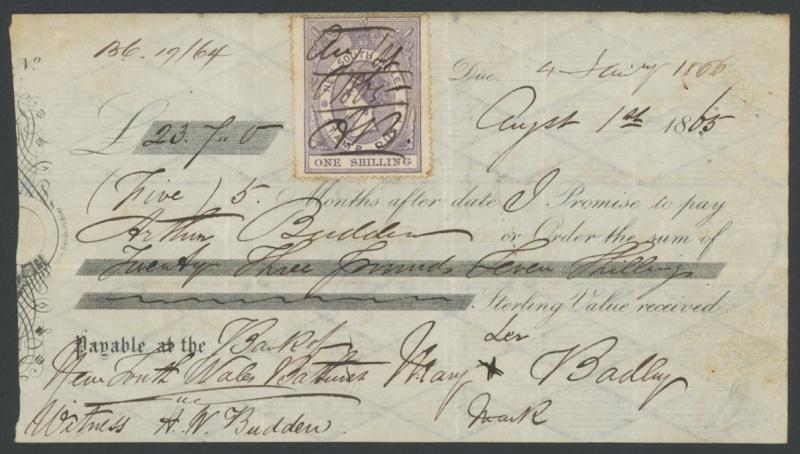 No. B6. 19/64
NEW SOUTH WALES
STAMP DUTY
ONE SHILLING
Due 4 Jany 1866
Augst 1st 1865
£ 23. 7. 0
(Five) 5. Months after date I Promise to pay
Arthur Budden or Order the sum of
Twenty Three pounds Seven Shillings
Sterling Value received
Payable at the Bank of
New South Wales Bathurst
Mary X Badley
her
mark
Witness A. W. Budden.